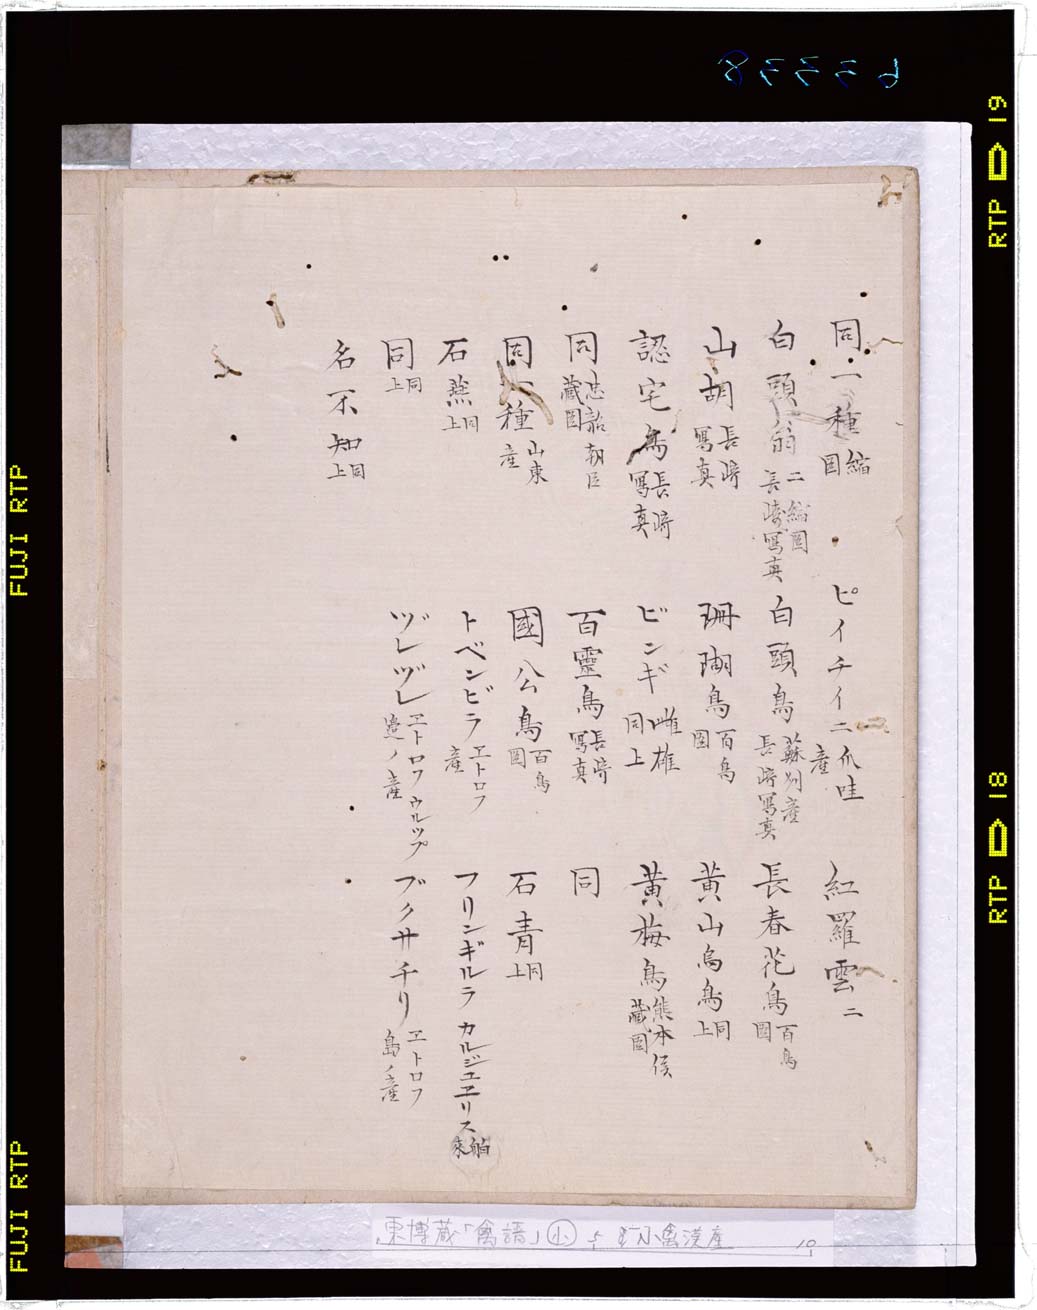 同一種 縮図 ピイチイ ニ 爪哇産 紅羅雲 ニ
白頭翁 二 縮図 長崎写真 白頭鳥 蘇州産 長崎写真 長春花鳥 百鳥図
山胡 長崎写真 珊瑚鳥 百鳥図 黄山烏鳥 同上
認宅鳥 長崎写真 ビンギ 雌雄 同上 黄梅鳥 熊本侯蔵図
同 忠詔朝臣蔵図 百霊鳥 長崎写真 同
同一種 山東産 國公鳥 百鳥図 石青 同上
石燕 同上 トベンビラ エトロフ産 フリンギルラ カルジュエリス 舶来
同 同上 ヅレヅレ エトロフ ウルップ邊ノ産 ブクサチリ エトロフ島ノ産
名不知 同上
63338
RTP 19
RTP 18
FUJI RTP
FUJI RTP
東博蔵「禽譜」小 5 小禽漢産 10